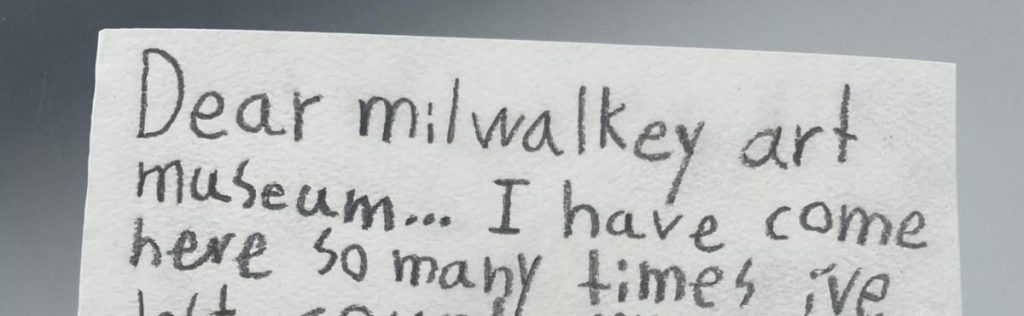 Dear milwalkey art
museum... I have come
here so many times ive